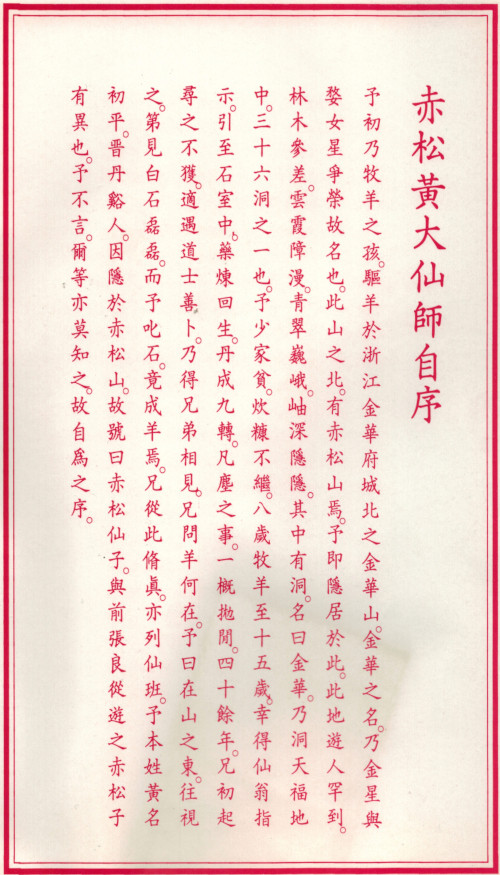 赤松黃大仙師自序
予初乃牧羊之孩。驅羊於浙江金華府城北之金華山。金華之名。乃金星與
婺女星爭榮故名也。此山之北。有赤松山焉。予即隱居於此。此地遊人罕到。
林木參差。雲霞障漫。青翠巍峨。岫深隱隱。其中有洞。名曰金華。乃洞天福地
中。三十六洞之一也。予少家貧。炊糠不繼。八歲牧羊至十五歲。幸得仙翁指
示。引至石室中。藥煉回生。丹成九轉。凡塵之事。一概拋閒。四十餘年。兄初起
尋之不獲。適遇道士善卜。乃得兄弟相見。兄問羊何在。予曰在山之東。往視
之。第見白石磊磊。而予叱石。竟成羊焉。兄從此脩眞。亦列仙班。予本姓黃名
初平。晋丹谿人。因隱於赤松山。故號曰赤松仙子。與前張良從遊之赤松子
有異也。予不言。爾等亦莫知之。故自爲之序。